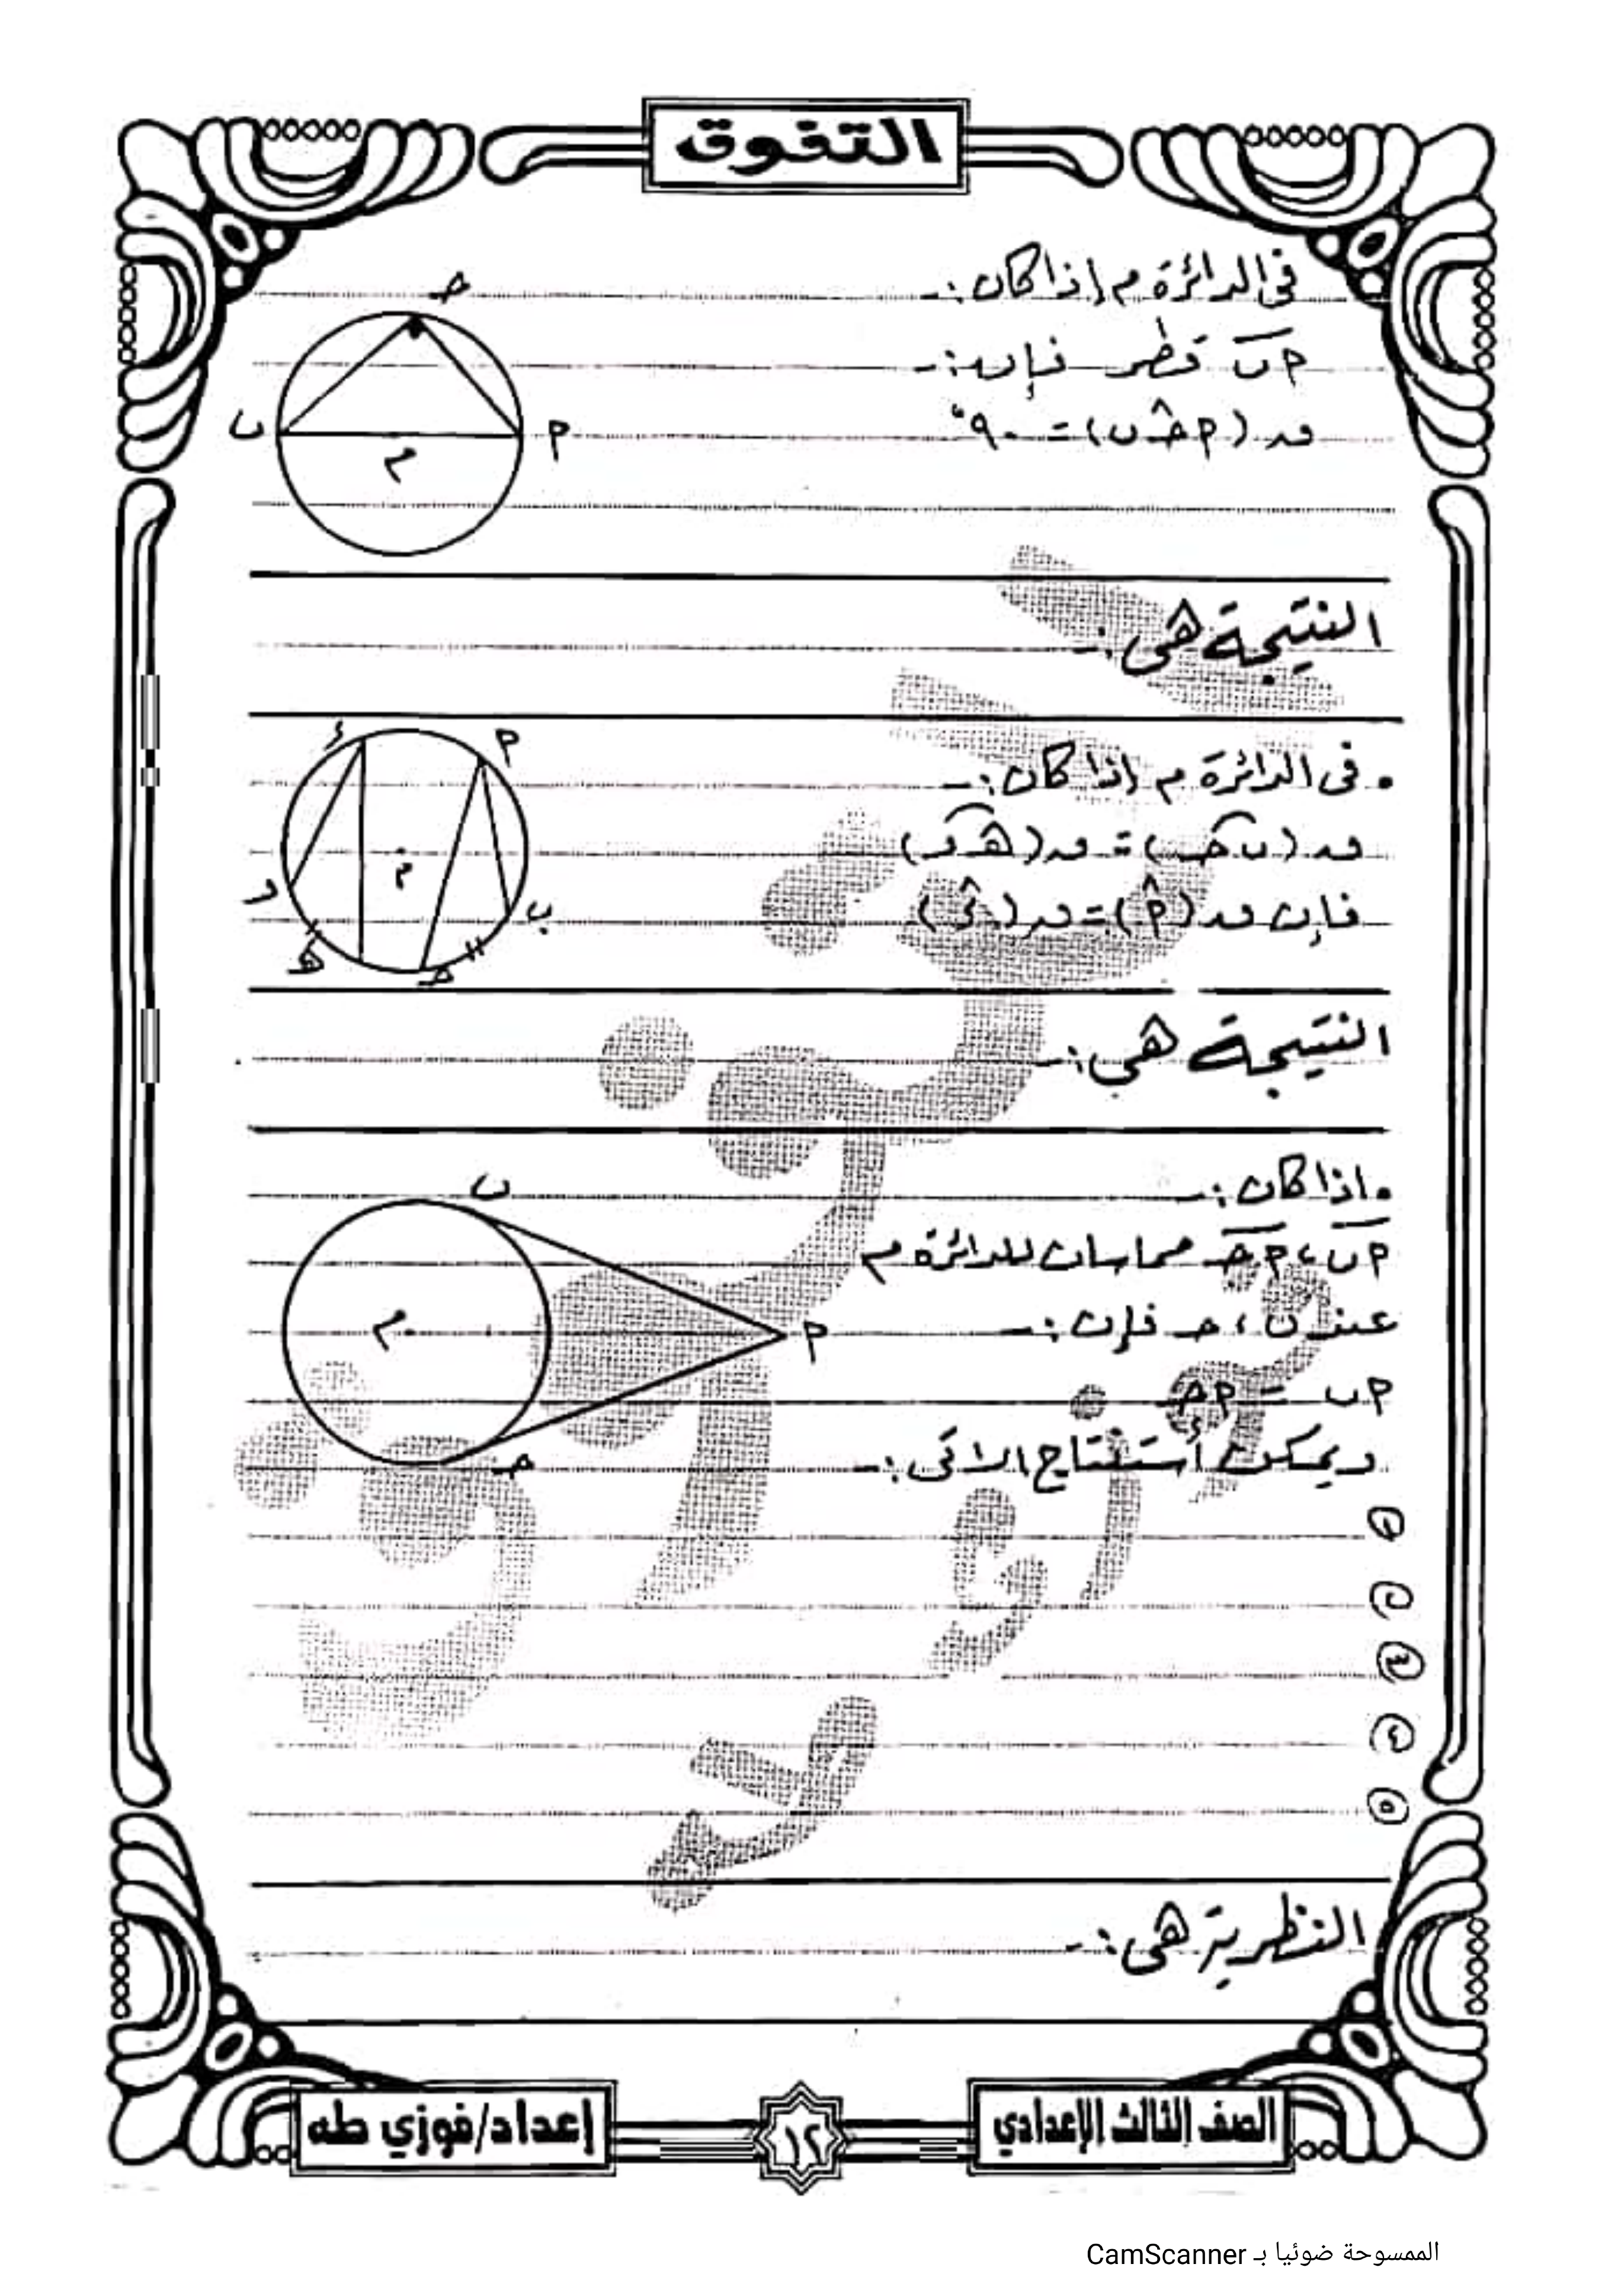 التفوق
فى الدائرة م إذا كان :-
حـ
أب قطر فإن :-
ق (أ حـ ب) = ٩٠°
ب
أ
م
النتيجة هى :-
• فى الدائرة م إذا كان :-
ء
أ
ق (ب حـ) = ق (هـ و)
م
فإن ق (أ) = ق (ء)
و
ب
هـ
حـ
النتيجة هى :-
• إذا كان :-
ب
أب ، أحـ مماسان للدائرة م
عند ب ، حـ فإن :-
م
أ
أب = أحـ
ويمكن أستنتاج الاتى :-
حـ
١
٢
٣
٤
٥
النظرية هى :-
الصف الثالث الإعدادي
١٢
إعداد/فوزي طه
الممسوحة ضوئيا بـ CamScanner